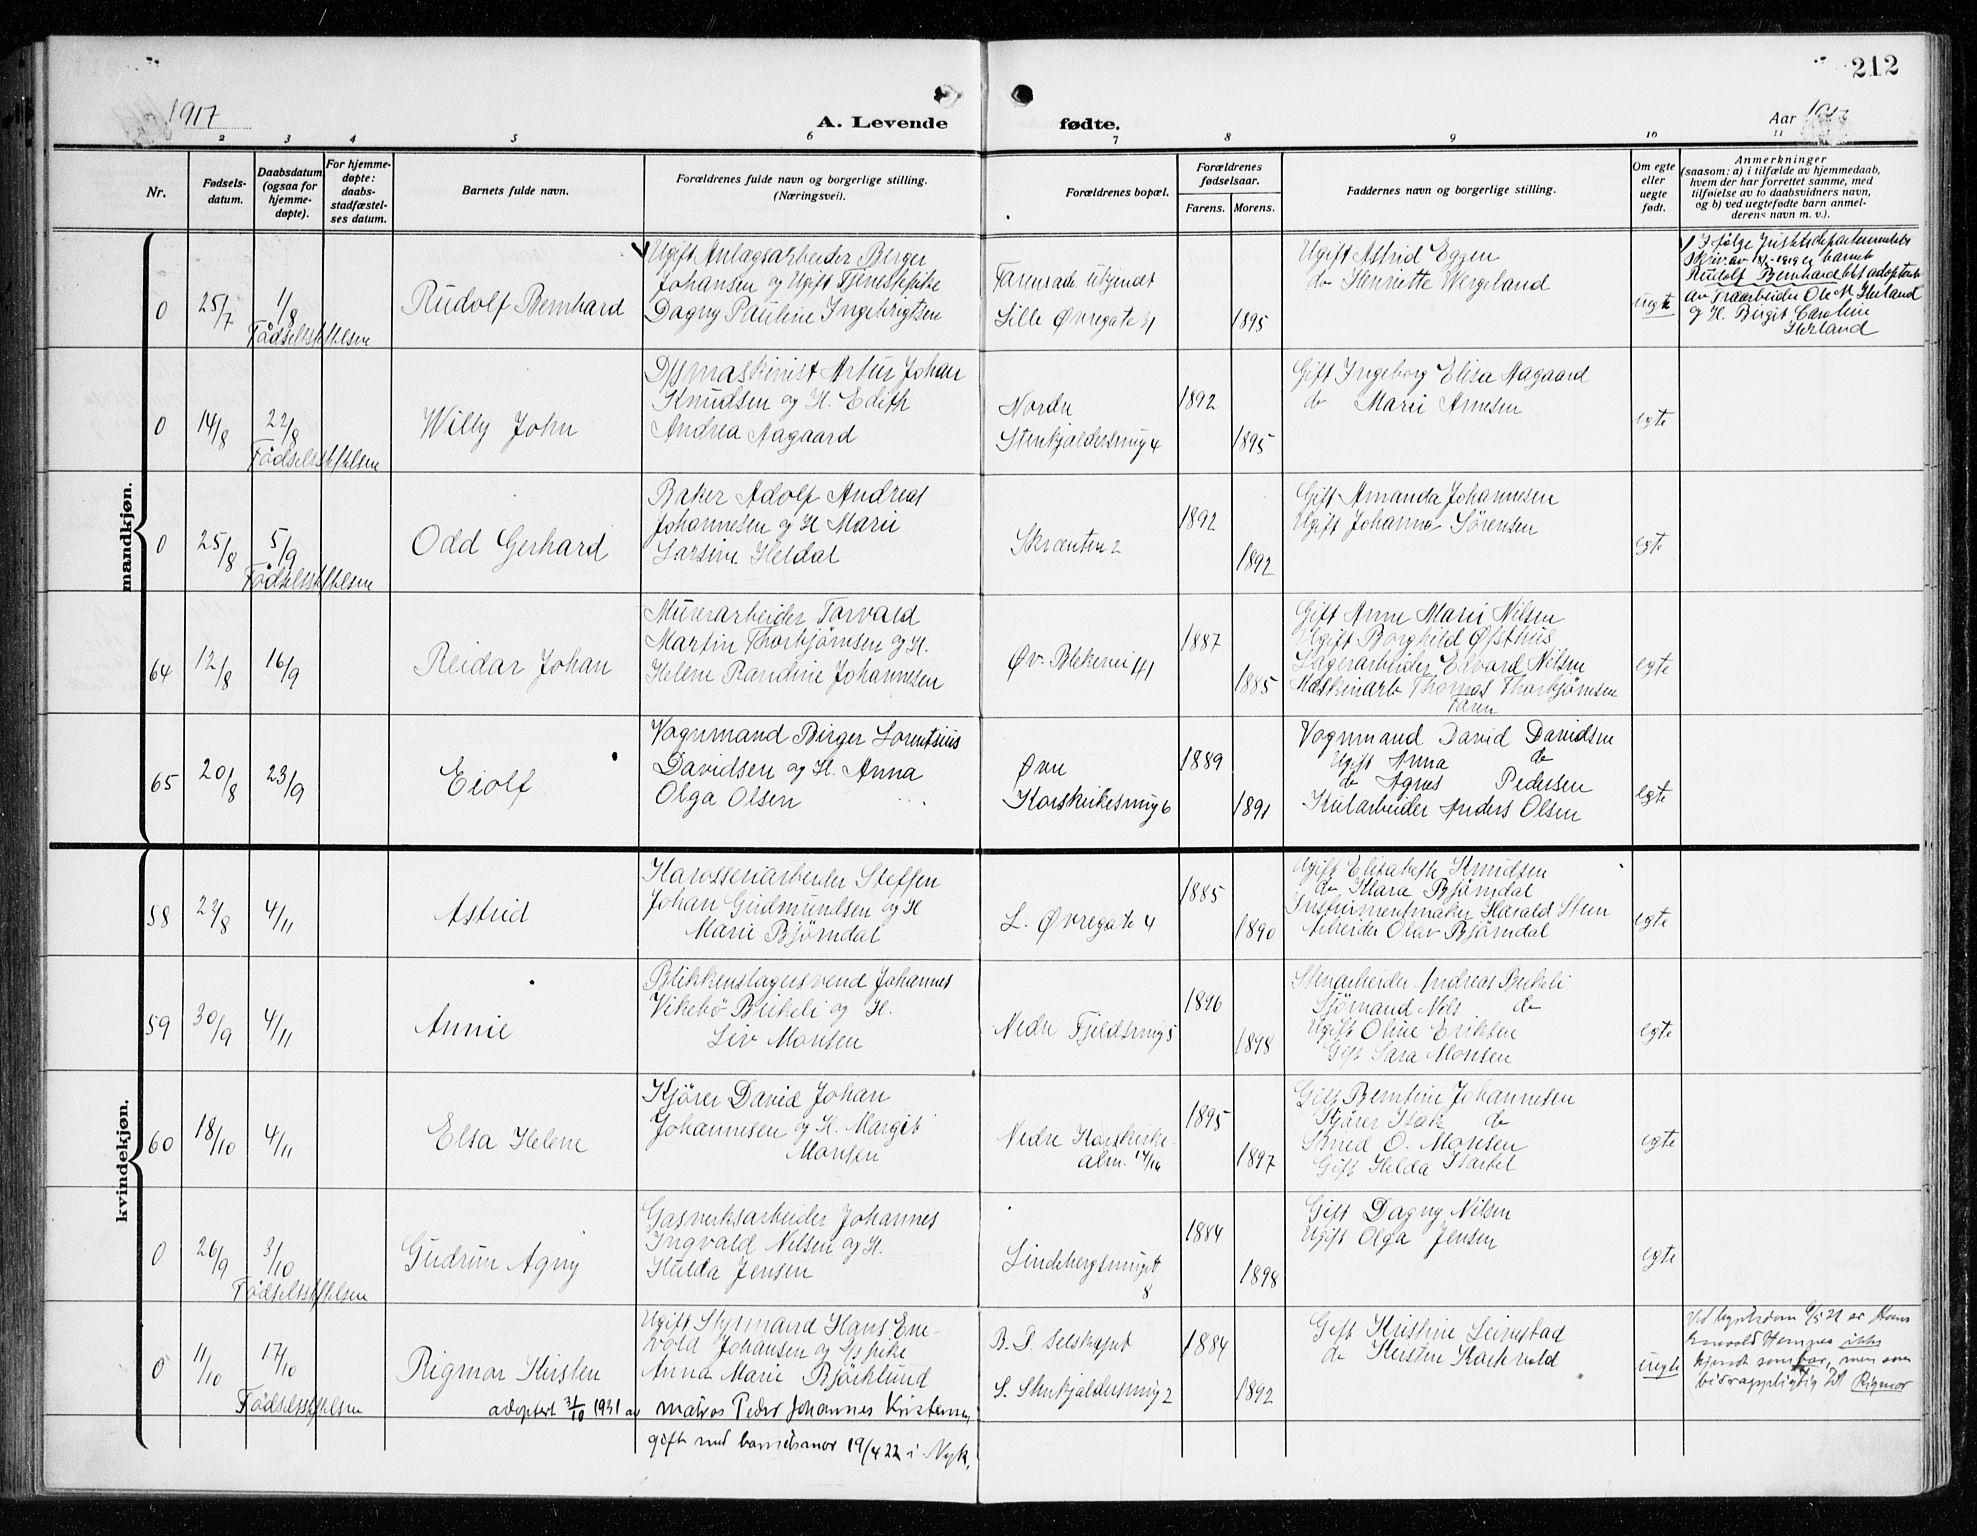 212
1917
Aar 1917
A. Levende fødte.
2 3 4 5 6 7 8 9 10 11
Nr.
Fødsels-
datum.
Daabsdatum
(ogsaa for
hjemme-
døpte).
For hjemme-
døpte:
daabs-
stadfæstel-
ses datum.
Barnets fulde navn.
Forældrenes fulde navn og borgerlige stilling.
(Næringsvei).
Forældrenes bopæl.
Forældrenes
fødselsaar.
Farens. Morens.
Faddernes navn og borgerlige stilling.
Om egte
eller
uegte
født.
Anmerkninger
(saasom: a) i tilfælde av hjemmedaab,
hvem der har forrettet samme, med
tilføielse av to daabsvidners navn,
og b) ved uegtefødte barn anmel-
derens navn m. v.).
mandkjøn.
0
25/7
1/8
Fødselsstiftelsen
Rudolf Bernhard
Ugift Anlagsarbeider Birger
Johansen og Ugift Tjenestepike
Dagny Pauline Ingebrigtsen
Farens adr. ukjendt
Lille Øvregate 31
1895
Ugift Astrid Eggen
do Henriette Wergeland
uegte
Ifølge Justisdepartementets
skriv. av
Rudolf Bernhard blit adoptert
av Træarbeider Ole M. Herland
og H. Birgit Caroline
Herland
0
14/8
22/8
Fødselsstiftelsen
Willy John
D/s maskinist Artur Johan
Knudsen og H. Edith
Andrea Aagaard
Nordre
Stenkjeldersmug 4
1892
1895
Gift Ingeborg Elisa Aagaard
do Marie Arnesen
egte
0
25/8
5/9
Fødselsstiftelsen
Odd Gerhard
Baker Adolf Andreas
Johannesen og H Marie
Larsine Heldal
Skrænten 2
1892
1892
Gift Amanda Johannesen
Ugift Johanne Sørensen
egte
64
12/8
16/9
Reidar Johan
Murerarbeider Torvald
Martin Thorbjørnsen og H.
Helene Randine Johannesen
Øv. Blekevei 41
1887
1885
Gift Anne Marie Nilsen
Ugift Borghild Øfsthus
Lagerarbeider Edvard Nilsen
Maskinarb Thomas Thorbjørnsen
Faren
egte
65
20/8
23/9
Eiolf
Vognmand Birger Lorentsius
Davidsen og H. Anna
Olga Olsen
Øvre
Korskirkesmug 6
1889
1891
Vognmand David Davidsen
Ugift Anna do
do Agnes Pedersen
Kularbeider Anders Olsen
egte
kvindekjøn.
58
22/8
4/11
Astrid
Karosseriarbeider Steffen
Johan Gudmundsen og H
Marie Bjørndal
L. Øvregate 4
1885
1890
Ugift Elisabeth Knudsen
do Klara Bjørndal
Instrumentmaker Harald Steen
Arbeider Olav Bjørndal
egte
59
30/9
4/11
Annie
Blikkenslagersvend Johannes
Vikebø Birkeli og H.
Liv Monsen
Nedre Fjeldsmug 5
1896
1898
Stenarbeider Andreas Birkeli
Sjømand Nils do
Ugift Oline Eriksen
Gift Sara Monsen
egte
60
18/10
4/11
Elsa Helene
Kjører David Johan
Johannesen og H. Margit
Monsen
Nedre Korskirke-
alm. 14/16
1895
1897
Gift Berntine Johannesen
Kjører Isak do
Smed O. Monsen
Gift Helda Isaksel
egte
0
26/9
3/10
Fødselsstiftelsen
Gudrun Agny
Gasverksarbeider Johannes
Ingvald Nilsen og H.
Hulda Jensen
Lindebergsmuget
8
1884
1898
Gift Dagny Nilsen
Ugift Olga Jensen
egte
0
11/10
17/10
Fødselsstiftelsen
Rigmor Kirsten
Ugift Styrmand Hans Ene-
vold Johansen og Tjs pike
Anna Marie Bjørklund
B. D. Selskapet
S. Stenkjeldersmug 2
1884
1892
Gift Kristine Leirestad
do Kirsten
uegte
Ved lagretsdom 9/5 21 er Hans
Enevold ikke
kjendt som far, men som
bidragspligtig til Rigmor
adoptert 3/10 1931 av matros Peder Johannes Kristensen
gift med barnets mor 19/4 22 i Nyk.